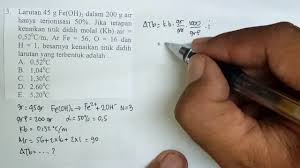 3. Larutan 45 g Fe(OH)₂ dalam 200 g air
hanya terionisasi 50%. Jika tetapan
kenaikan titik didih molal (Kb) air =
0,52⁰C/m, Ar Fe = 56, O = 16 dan
H = 1, besarnya kenaikan titik didih
larutan yang terbentuk adalah
A. 0,52⁰C
B. 1,04⁰C
C. 1,30⁰C
D. 2,60⁰C
E. 5,20⁰C
gr = 45 gr Fe(OH)₂ → Fe²⁺ + 2OH⁻ N=3
grP = 200 gr α = 50% = 0,5
Kb = 0,52 °C/m
Mr = 56 + 2×16 + 2×1 = 90
ΔTb = ....?
ΔTb = Kb . gr/mr . 1000/grP . i
=